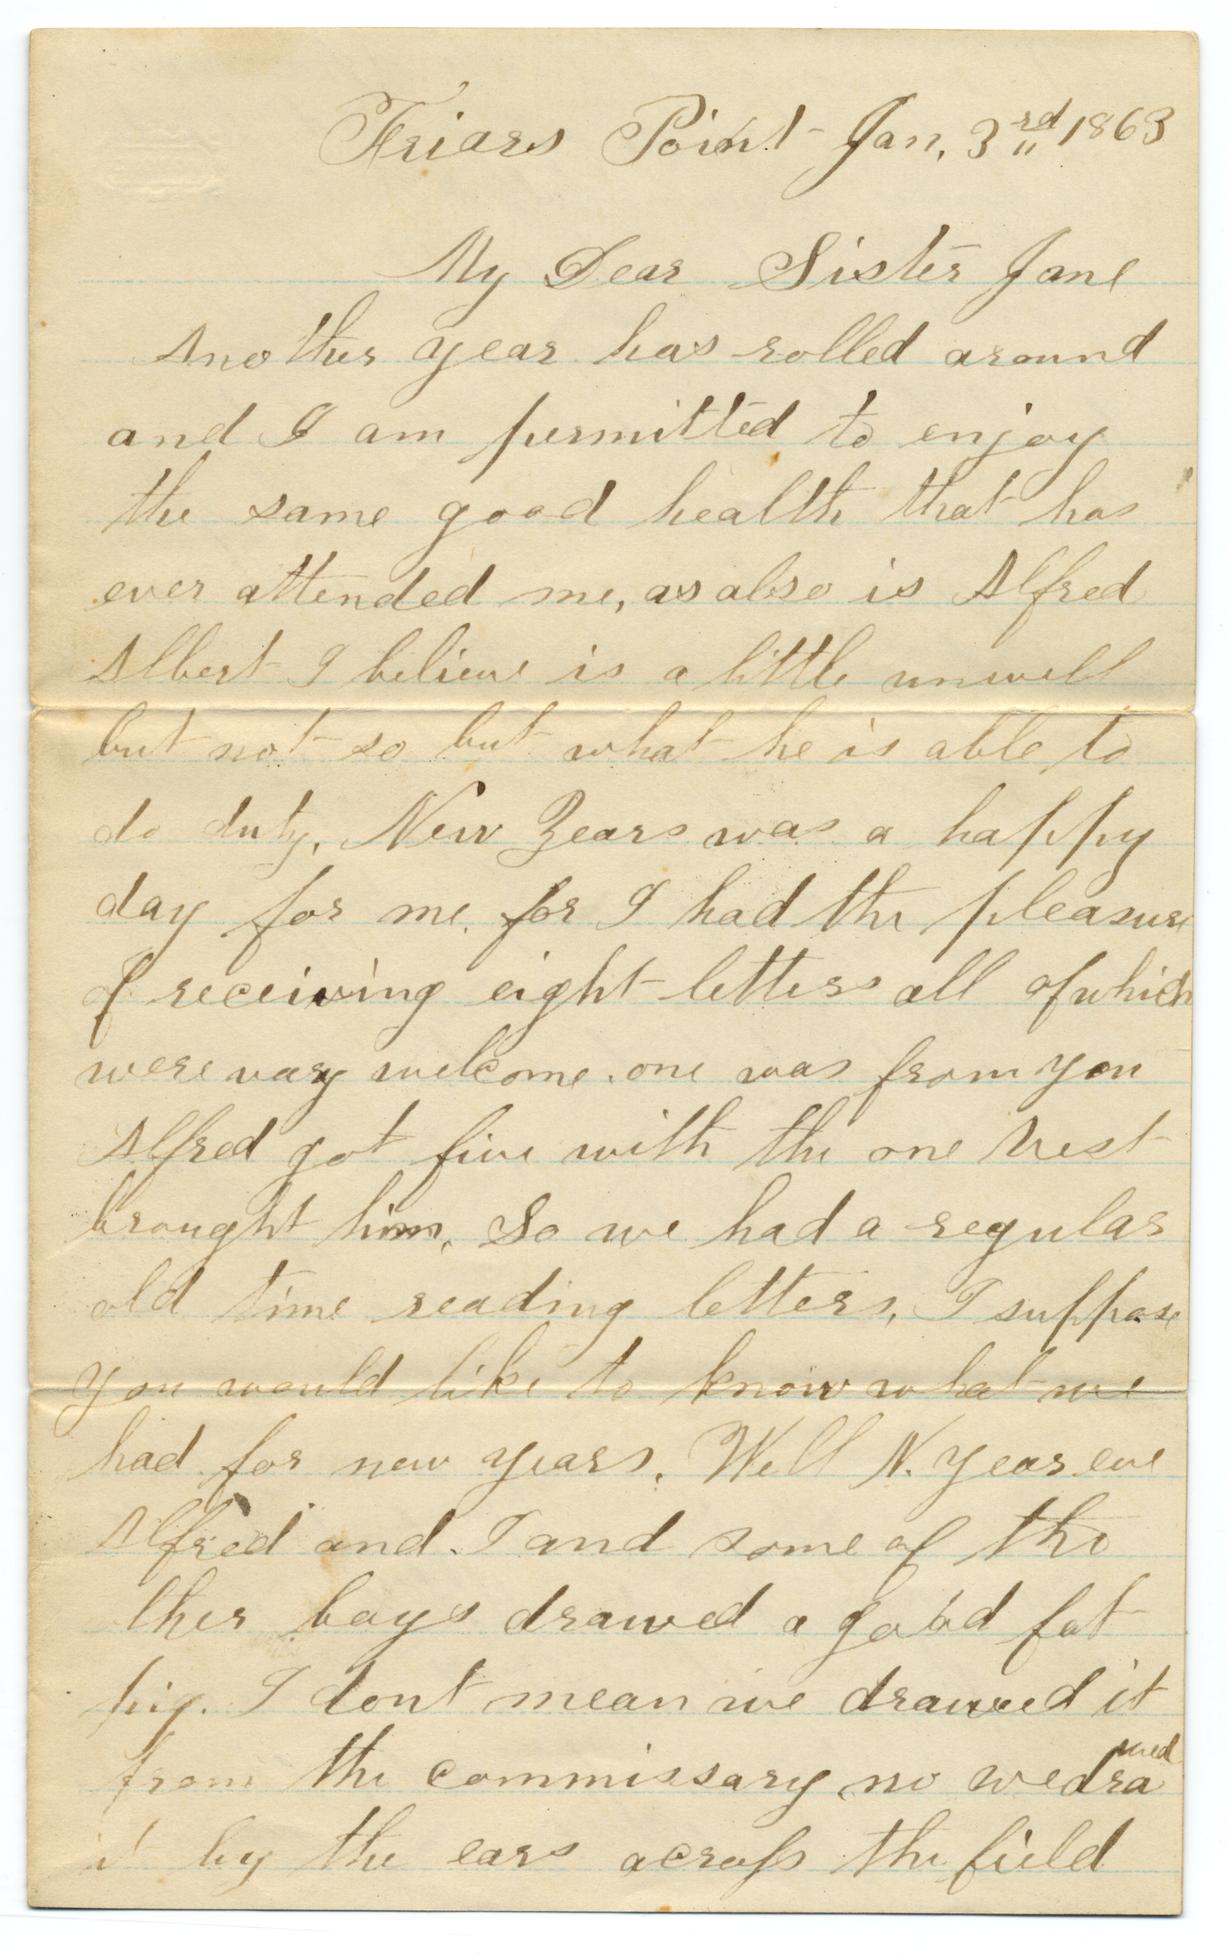 Friars Point Jan, 3rd 1863
My Dear Sister Jane
Another year has rolled around
and I am permitted to enjoy
the same good health that has
ever attended me, as also is Alfred
Albert I believe is a little unwell
but not so but what he is able to
do duty, New Years was a happy
day for me, for I had the pleasure
of receiving eight letters all of which
were vary welcome. one was from you
Alfred got five with the one West
brought him, So we had a regular
old time reading letters, I suppose
you would like to know what we
had for new years, Well N. Year eve
Alfred and I and some of the o
ther boys drawed a good fat
pig. I dont mean we drawed it
from the commissary, no we drawed
it by the ears across the field